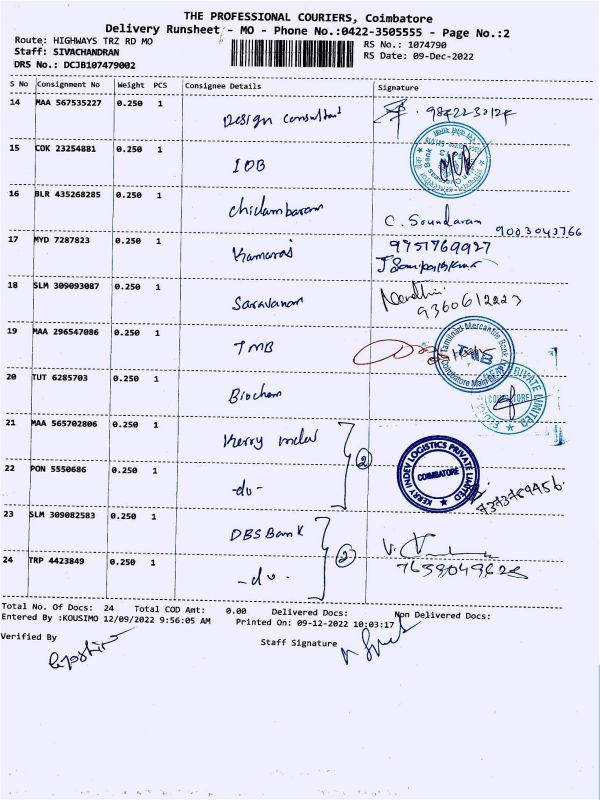 THE PROFESSIONAL COURIERS, Coimbatore
Delivery Runsheet - MO - Phone No.:0422-3505555 - Page No.:2
Route: HIGHWAYS TRZ RD MO
RS No.: 1074790
Staff: SIVACHANDRAN
RS Date: 09-Dec-2022
DRS No.: DCJB107479002
S No Consignment No Weight PCS Consignee Details Signature
14 MAA 567535227 0.250 1 Design consultant 9842230124
15 COK 23254881 0.250 1 IOB
16 BLR 435268285 0.250 1 Chidambaram C. Soundaram 9003043766
17 MYD 7287823 0.250 1 Kamaraj 9751769927
18 SLM 309093087 0.250 1 Saravanan Nandhini 9360612223
19 MAA 296547086 0.250 1 TMB
Tamilnad Mercantile Bank Ltd TMB Coimbatore Main Br
20 TUT 6285703 0.250 1 Biochem
PRIVATE LIMITED COIMBATORE
21 MAA 565702806 0.250 1 Kerry indev
2
KERRY INDEV LOGISTICS PRIVATE LIMITED COIMBATORE
22 PON 5550686 0.250 1 -do- 7373789456
23 SLM 309082583 0.250 1 DBS Bank
2
24 TRP 4423849 0.250 1 -do-
Total No. Of Docs: 24 Total COD Amt: 0.00 Delivered Docs: Non Delivered Docs:
Entered By :KOUSIMO 12/09/2022 9:56:05 AM Printed On: 09-12-2022 10:03:17
Verified By Staff Signature